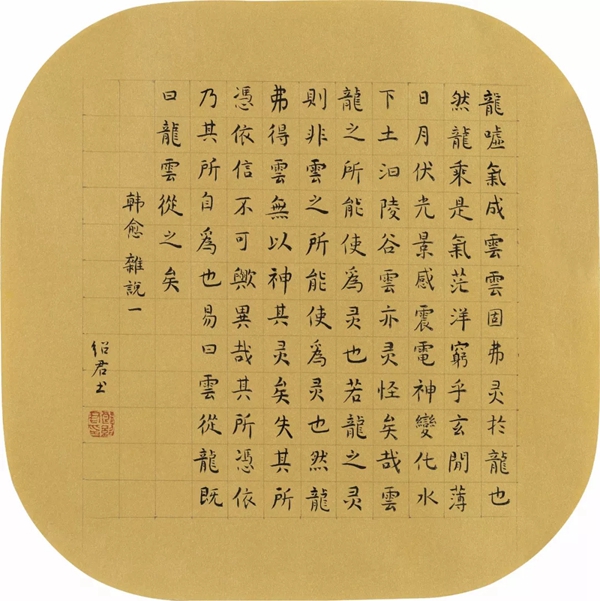 龍噓氣成雲雲固弗灵於龍也
然龍乘是氣茫洋窮乎玄閒薄
日月伏光景感震電神變化水
下土汩陵谷雲亦灵怪矣哉雲
龍之所能使為灵也若龍之灵
則非雲之所能使為灵也然龍
弗得雲無以神其灵矣失其所
憑依信不可歟異哉其所憑依
乃其所自為也易曰雲從龍既
曰龍雲從之矣
韩愈 雜說一
绍君书